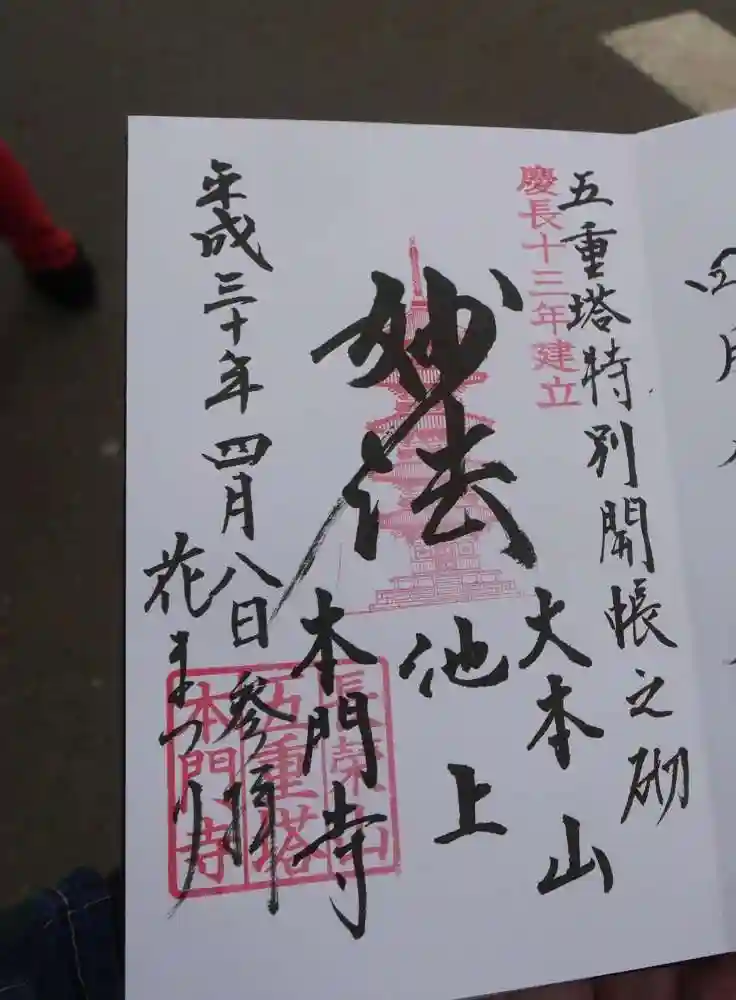 五重塔特別開帳之砌
慶長十三年建立
妙法
大本山
池上
本門寺
平成三十年四月八日参拝
花まつり
長榮山
五重塔
本門寺
四月八